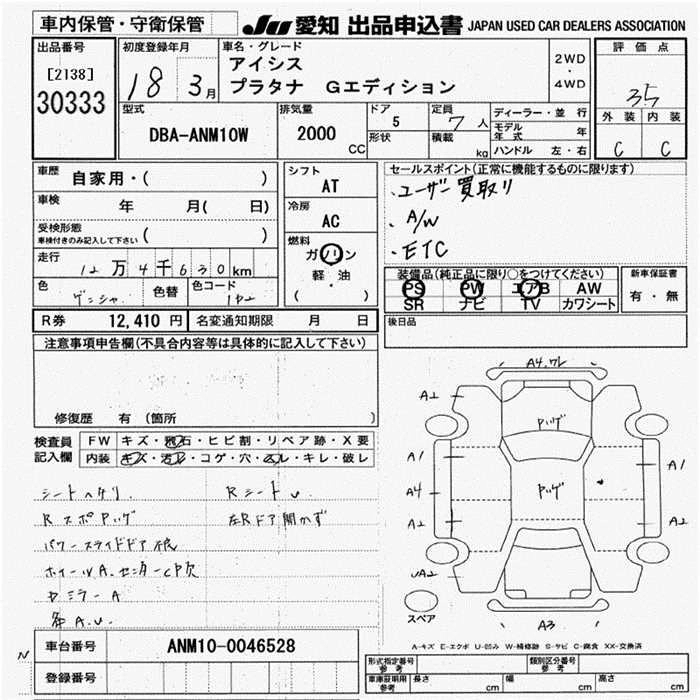 車内保管・守衛保管
JU 愛知 出品申込書 JAPAN USED CAR DEALERS ASSOCIATION
出品番号
[2138]
30333
初度登録年月
18 3月
車名・グレード
アイシス
プラタナ Gエディション
2WD
・
4WD
評価点
3.5
外装 内装
C C
型式
DBA-ANM10W
排気量
2000
CC
ドア
5
形状
定員
7人
積載
kg
ディーラー・並行
モデル年式 年
ハンドル 左・右
車歴 自家用・( )
車検 年 月( 日)
受検形態
車検付きのみ記入して下さい ( )
走行
12万4千630km
色 色替 色コード
1P2
シフト
AT
冷房
AC
燃料
ガソリン
・
軽・油
( )
セールスポイント(正常に機能するものに限ります)
・ユーザー買取り
・A/W
・ETC
装備品(純正品に限り○をつけてください)
PS PW エアB AW
SR ナビ TV カワシート
新車保証書
有・無
後日品
R券 12,410円 名変通知期限 月 日
注意事項申告欄(不具合内容等は具体的に記入して下さい)
修復歴 有 (箇所 )
検査員
記入欄
FW キズ・飛石・ヒビ割・リペア跡・X要
内装 キズ・汚レ・コゲ・穴・スレ・キレ・破レ
シートヘタリ
RシートU.
左Rドア開かず
ホイールA.センターCP欠
ドミラーA
A.U.
A4.ワレ
A2
A1
A4
A2
UA2
A1
A2
A3
スペア
A-キズ E-エクボ U-凹み W-補修跡 S-サビ C-腐食 XX-交換済
N
車台番号 ANM10-0046528
登録番号
形式指定番号
参考
類別区分番号
参考
車庫証明用
参考
長さ cm 幅 cm 高さ cm